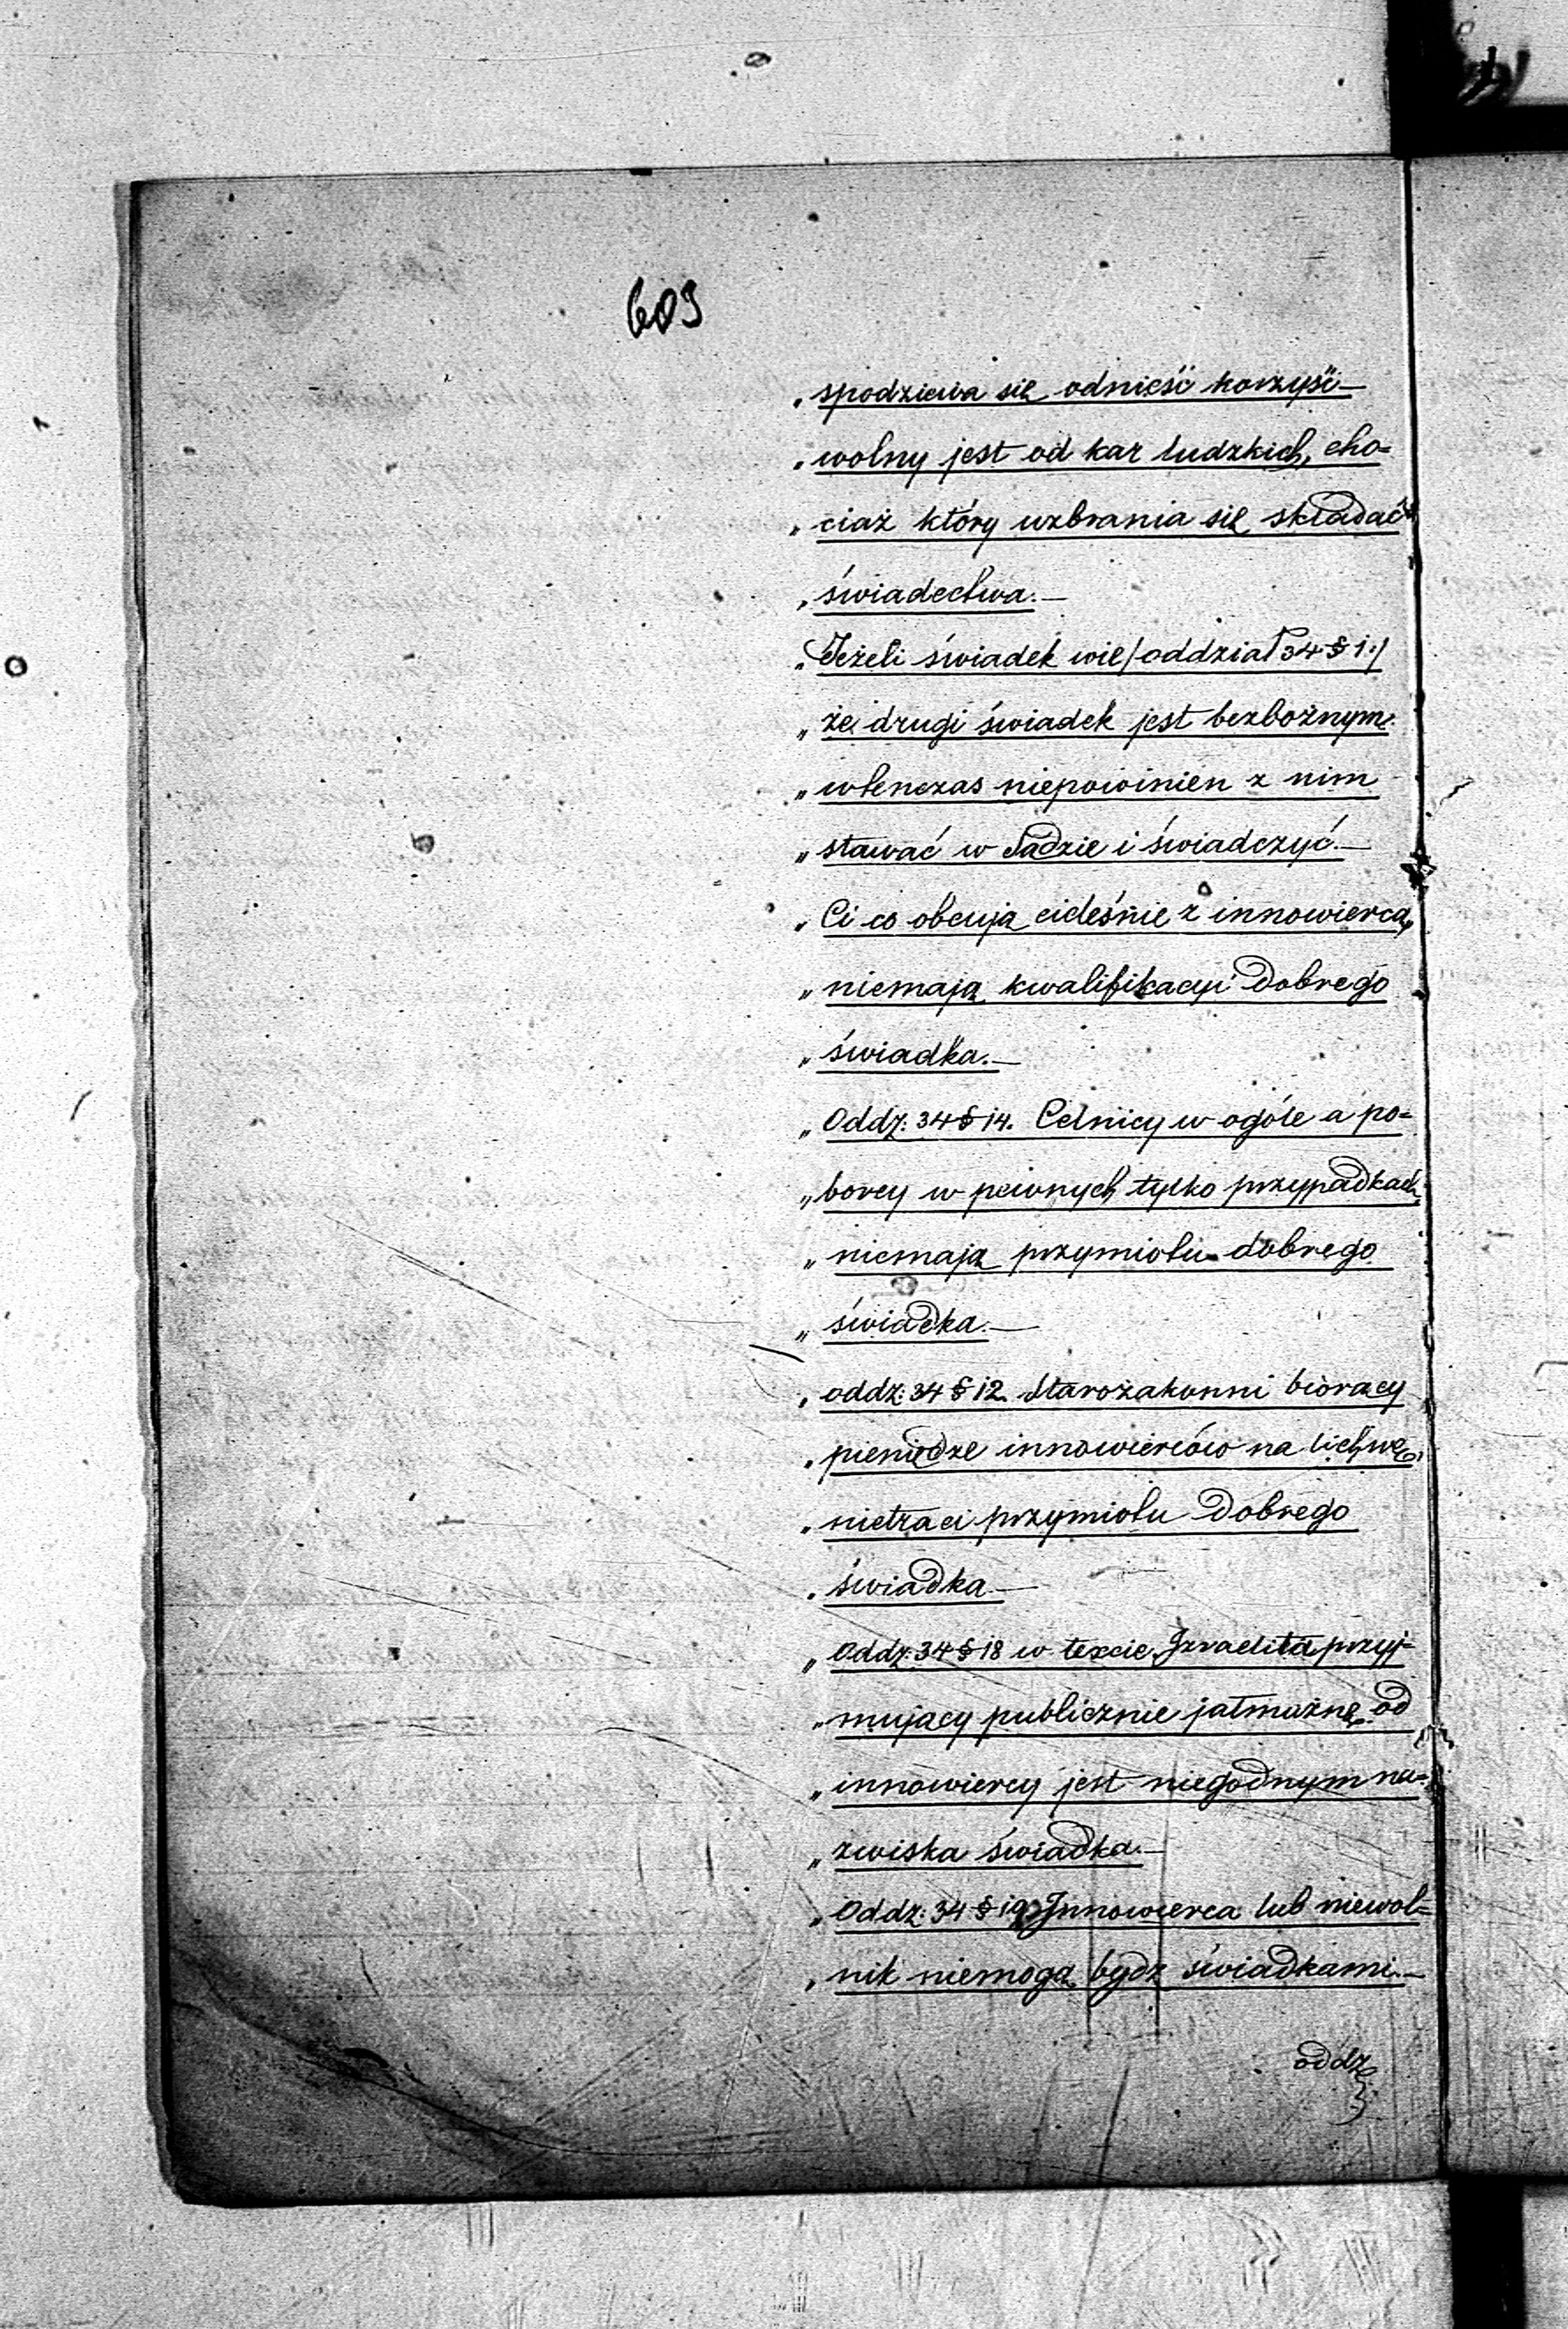 603
„spodziewa się odnieść korzyść—
„wolny jest od kar ludzkich, cho=
„ciaż który wzbrania się składać
„świadectwa.—
„Jeżeli świadek wie/oddział 34 § 1:/
„że drugi świadek jest bezbożnym
„wtenczas niepowinien z nim
„stawać w Sądzie i świadczyć.—
„Ci co obcują cieleśnie z innowiercą,
„niemają kwalifikacyi dobrego
„świadka.—
„Oddz: 34 § 14. Celnicy w ogóle a po=
„borcy w pewnych tylko przypadkach
„niemają przymiotu dobrego
„świadka.—
„oddz: 34 § 12. Starozakonni biorący
„pieniądze innowierców na lichwę,
„nietraci przymiotu dobrego
„świadka—
„Oddz: 34 § 18 w texcie Izraelita przyj=
„mujący publicznie jałmużnę od
„innowiercy jest niegodnym na=
„zwiska świadka.—
„Oddz: 34 § 19 Innowierca lub niewol=
„nik niemogą bydz świadkami.—
oddz